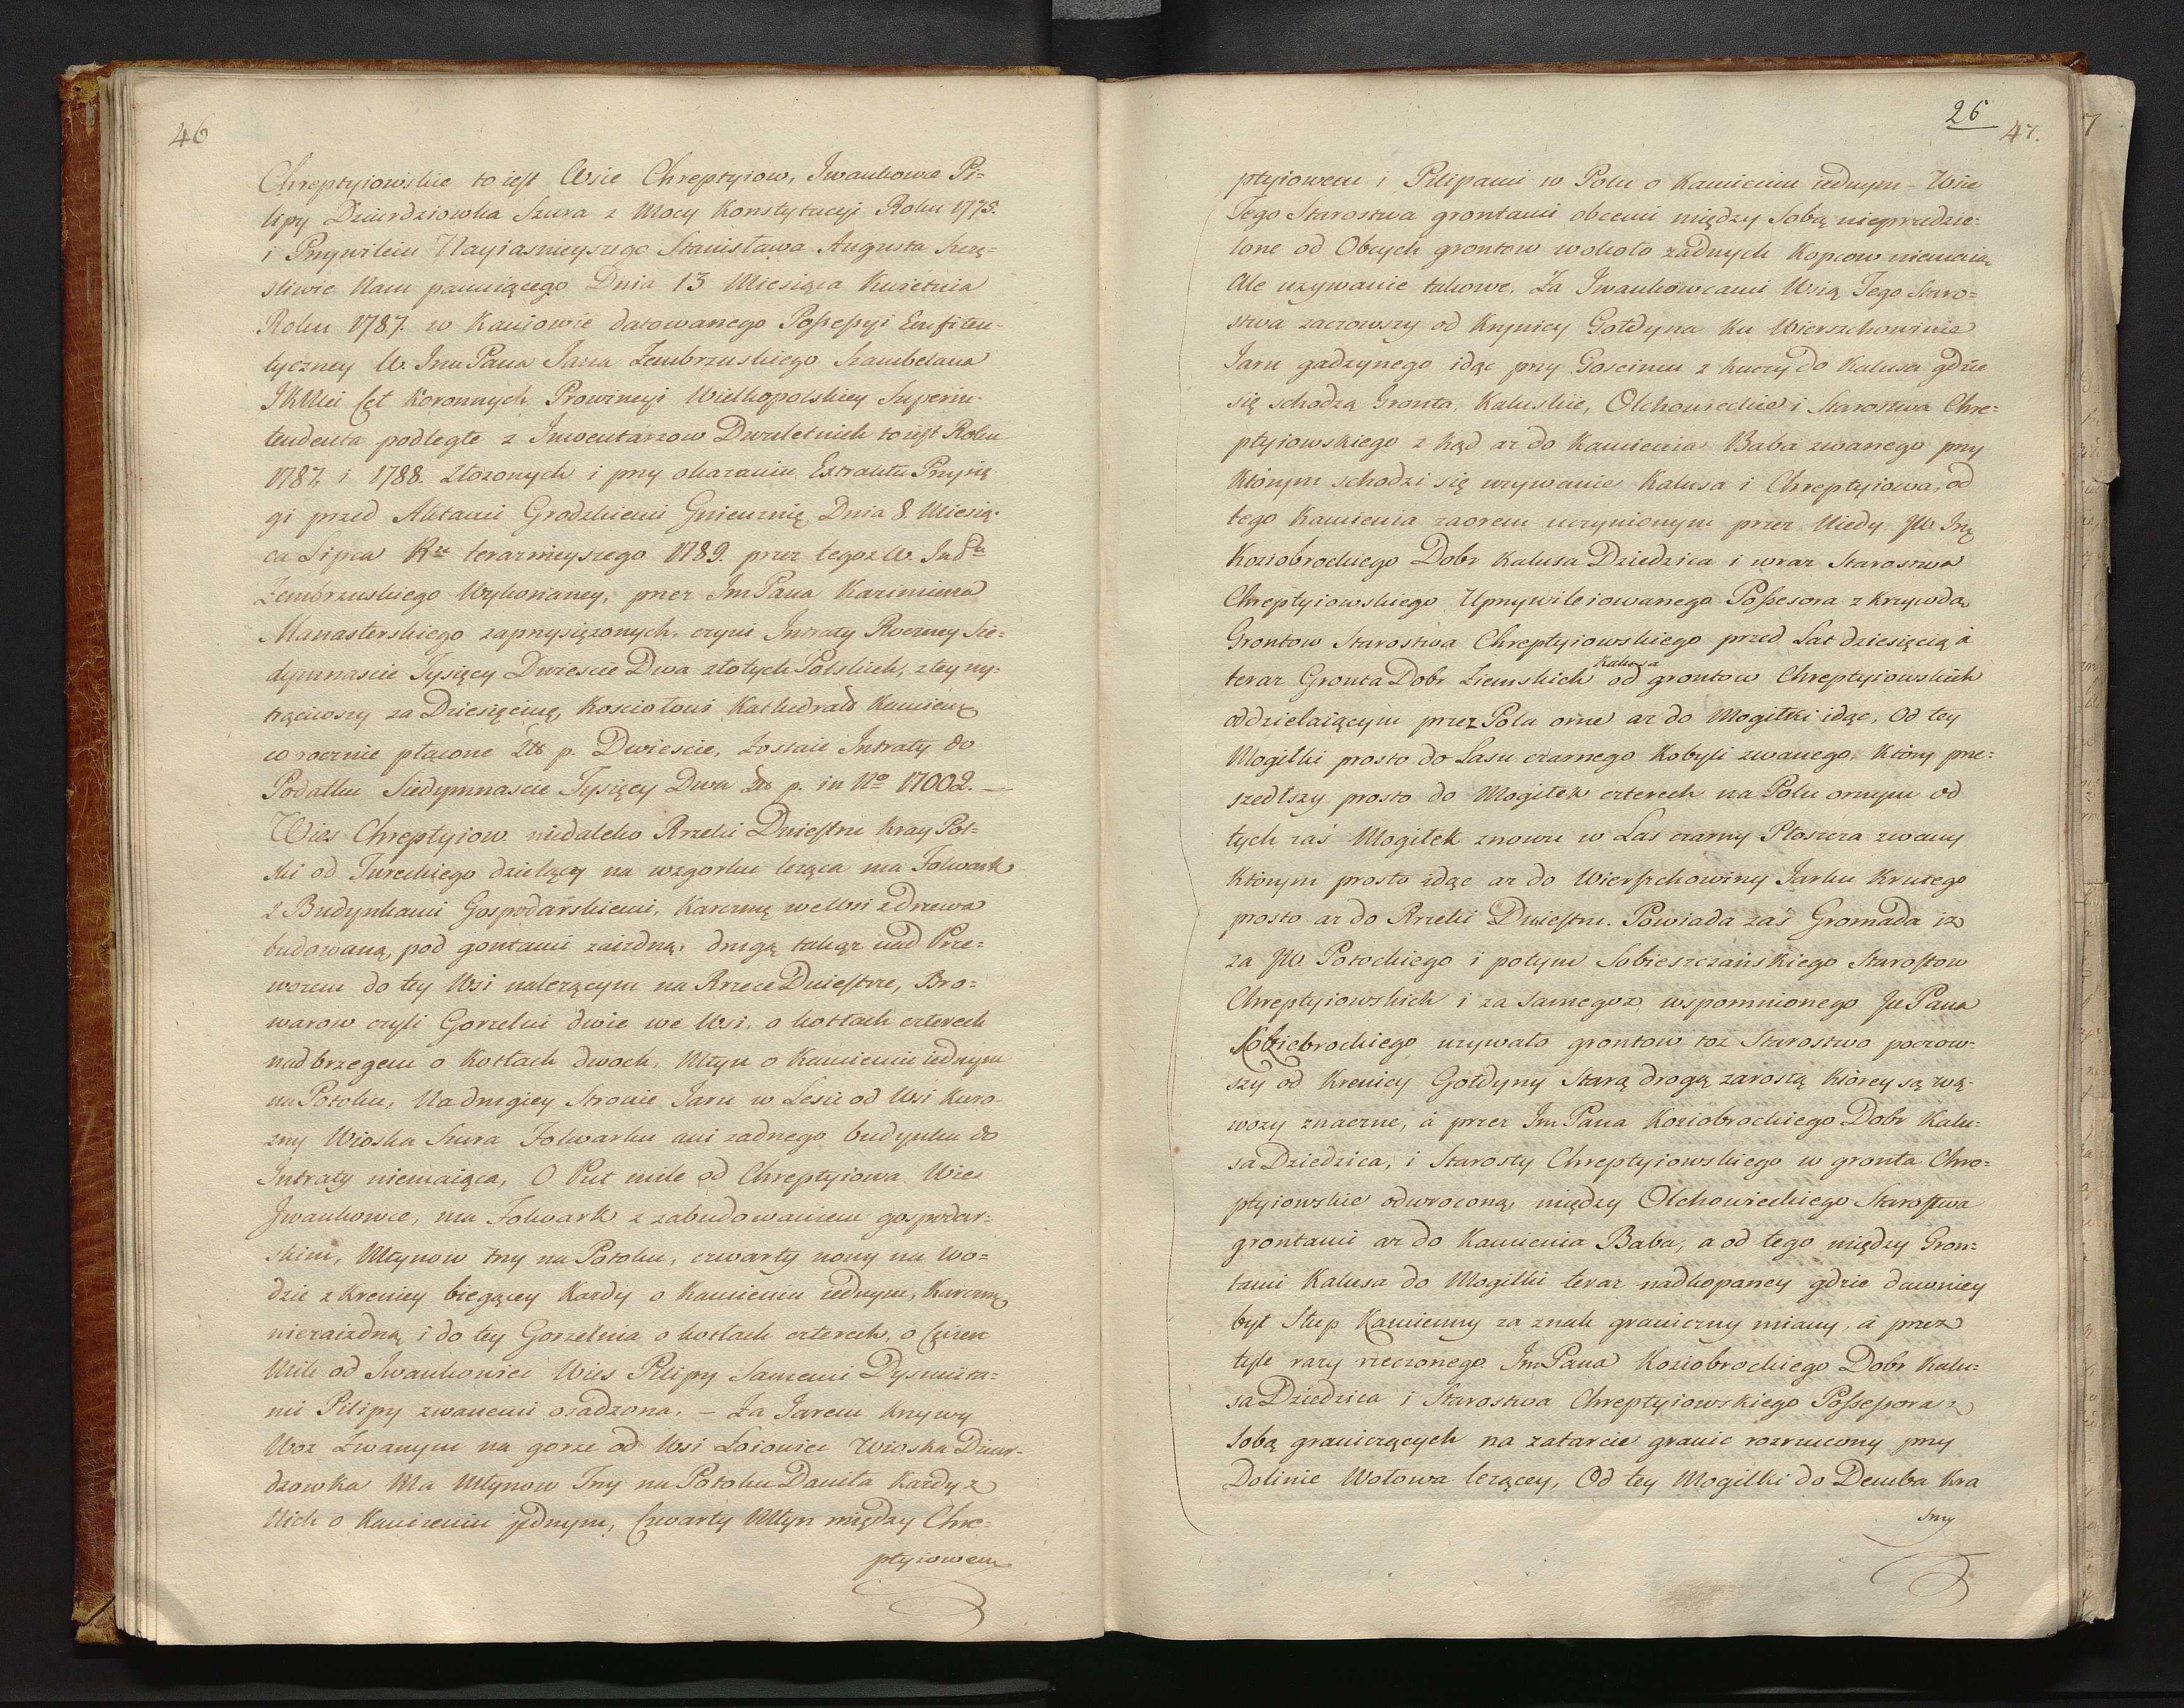 46
Chreptyiowskie to iest Wsie Chreptyiow, Iwankowce Pi=
lipy Dziurdziowka Szura z Mocy Konstytucyi Roku 1775.
i Przywileiu Nayiasnieyszego Stanisława Augusta szczę=
sliwie Nam panuiącego Dnia 13 Miesiąca Kwietnia
Roku 1787. w Kaniowie datowanego Possessyi Emfiteu-
tyczney W. Imc Pana Jana Zembrzuskiego Szambelana
JKMci Cet Koronnych Prowincyi Wielkopolskiey Superin-
tendenta podległe z Inwentarzow Dwuletnich to iest Roku
1787. i 1788. Złozonych i przy okazaniu Extraktu Przysię
gi przed Aktami Grodzkiemi Gnieznię Dnia 8. Miesią-
ca Lipca Rku terazniejszego 1789. przez tegoz W. Im Pa
Zembrzuskiego Wykonaney, przez Im Pana Kazimierza
Manasterskiego zaprzysięzonych, czyni Intraty Roczney Sie=
dymnascie Tysięcy Dwiescie Dwa złotych Polskich, z tey wy-
trąciwszy za Dziesięcinę Kosciołowi Kathedral Kamieniec
co rocznie płacone Zło p. Dwiescie, Zostaie Intraty do
Podatku Siedymnascie Tysięcy Dwa Zło p. in No 17002. —
Wies Chreptyiow niedaleko Rzeki Dniestru Kray Pol=
ski od Tureckiego dzielący na wzgorku leząca ma Folwark
z Budynkami Gospodarskiemi, Karczmę we Wsi z Drzewa
budowaną, pod gontami zaiezdną, drugą takąz nad Prze=
wozem do tey Wsi nalezącym na Rzece Dniestrze, Bro=
warow czyli Gorzelni dwie we Wsi, o kotłach czterech
nad brzegiem o Kotłach dwoch, Młyn o Kamieniu iednym
na Potoku, Na drugiey Stronie Jaru w Lesie od Wsi Kuro-
zny Wioska Szura Folwarku ani zadnego budynku do
Intraty niemaiąca, O Puł mile od Chreptyiowa Wies
Iwankowce, ma Folwark z zabudowaniem gospodar-
skim, Młynow trzy na Potoku, czwarty nowy na Wo=
dzie z Krenicy biegącey Kazdy o Kamieniu iednym, Karczmę
niezaiezdną, i do tey Gorzelnia o kotłach czterech, o Czwierc
Mili od Iwankowiec Wies Pilipy Samemi Dyssunita=
mi Pilipy zwanemi osadzona. — Za Jarem Krzywy
Woz Zwanym na gorze od Wsi Łoiowiec Wioska Dziur-
dzowka Ma Młynow Trzy na Potoku Daniła Kazdy z
Nich o Kamieniu jednym, Czwarty Młyn między Chre=
ptyiowem
26
47.
ptyiowem i Pilipami w Polu o Kamieniu iednym - Wsie
Tego Starostwa grontami obcemi między Sobą nieprzedzie=
lone od Obcych grontow wokoło zadnych Kopcow niemaią
Ale uzywanie takowe. Za Iwankowcami Wsią Tego Staro=
stwa zacząwszy od Krynicy Gołdyna Ku Wierszchowinie
Jaru gadzynego idąc przy Goscincu z Kuczy do Kalusa gdzie
się schodzą Gronta, Kaluskie, Olchowieckie i Starostwa Chre=
ptyiowskiego z kąd az do Kamienia Baba zwanego przy
Którym schodzi się uzywanie Kalusa i Chreptyiowa, od
tego Kamienia zaorem uczynionym przez Niedy JW. Imę
Koziobrockiego Dobr Kalusa Dziedzica i wraz Starostwa
Chreptyiowskiego Uprzywileiowanego Possesora z Krzywdą
Grontow Starostwa Chreptyiowskiego przed Lat dziesięcią á
teraz Gronta Dobr Ziemskich Kalusa od grontow Chreptyiowskich
oddzielaiącym przez Pola orne az do Mogiłki idąc, Od tey
Mogiłki prosto do Lasu czarnego Kobyli zwanego, Który prze=
szedłszy prosto do Mogiłek czterech na Polu ornym od
tych zaś Mogiłek znowu w Las czarny Płoszcza zwany
Którym prosto idąc az do Wierszchowiny Jarku Krutego
prosto az do Rzeki Dniestru. Powiada zaś Gromada iz
za JW. Potockiego i potym Sobieszczańskiego Starostow
Chreptyiowskich i za Samegoz wspomnionego Jm Pana
Koziebrockiego uzywało grontow toz Starostwo począw-
szy od Krenicy Gołdyny Starą drogą zarosłą Którey są wą-
wozy znaczne, á przez Im Pana Koziobrockiego Dobr Kalu-
sa Dziedzica, i Starosty Chreptyiowskiego w gronta Chre=
ptyiowskie odwroconą, między Olchowieckiego Starostwa
grontami az do Kamienia Baba, a od tego między Gron=
tami Kalusa do Mogiłki teraz nadkopaney gdzie dawniey
był Słup Kamienny za znak graniczny miany, á przez
tyle razy rzeczonego Im Pana Koziobrockiego Dobr Kalu=
sa Dziedzica i Starostwa Chreptyiowskiego Possessora z
Sobą graniczących na zatarcie granic rozrzucony przy
Dolinie Wołowa lezącey, Od tey Mogiłki do Demba Kra
sny